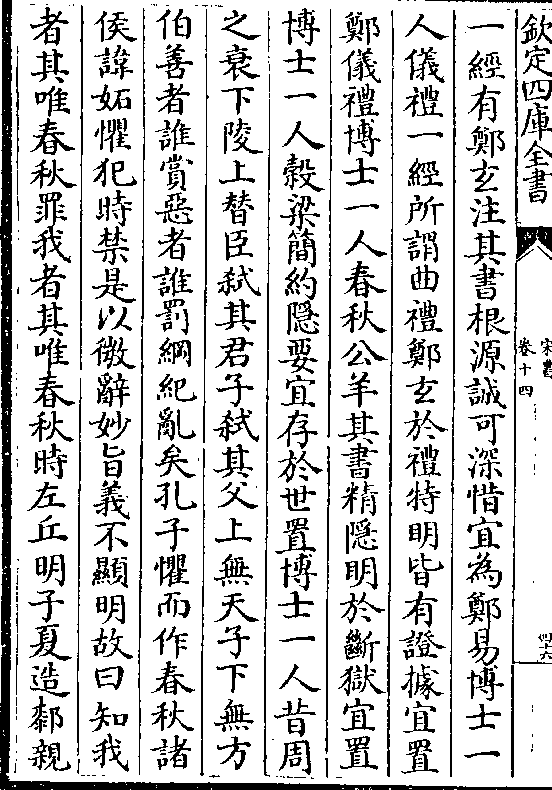 欽定四庫全書
宋書
卷十四
四十六
一經有鄭玄注其書根源誠可深惜宜為鄭易博士一
人儀禮一經所謂曲禮鄭玄於禮特明皆有證據宜置
鄭儀禮博士一人春秋公羊其書精隱明於斷獄宜置
博士一人榖梁簡約隱要宜存於世置博士一人昔周
之衰下陵上替臣弑其君子弑其父上無天子下無方
伯善者誰賞惡者誰罰綱紀亂矣孔子懼而作春秋諸
侯諱妬懼犯時禁是以微辭妙旨義不顯明故曰知我
者其唯春秋罪我者其唯春秋時左丘明子夏造郄親